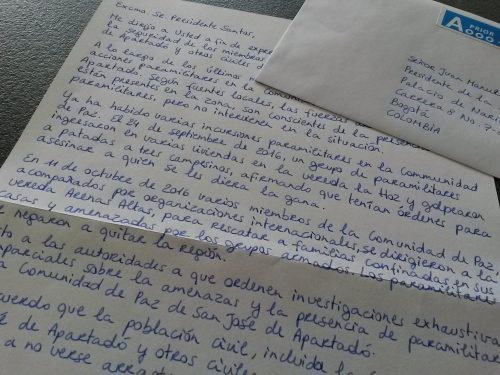 Excmo. Sr. Presidente Santos,
Me dirijo a Usted a fin de
la seguridad de los miembros
de Apartadó y otros civiles
A lo largo de los últimos
acciones paramilitares en la
Apartadó. Según fuentes locales, las fuerzas
están presentes en la zona, son conscientes de la
paramilitares, pero no intervienen en la situación.
Ya ha habido varias incursiones paramilitares en la Comunidad
de Paz. El 24 de septiembre de 2016, un grupo de paramilitares
ingresaron en varias viviendas en la vereda la Hoz y golpearon
a patadas a tres campesinos, afirmando que tenían órdenes para
asesinar a quien se les diera la gana.
En 11 de octubre de 2016 varios miembros de la Comunidad de Paz
acompañados por organizaciones internacionales, se dirigieron a la
vereda Arenas Altas, para rescatar a familias confinadas en sus
casas y amenazadas por los grupos armados. Los paramilitares
negaron a quitar la región.
a las autoridades a que ordenen investigaciones
sobre la amenazas y la presencia de
Comunidad de Paz de San José de Apartadó.
que la población civil, incluida la
de Apartadó y otros civiles
a no verse
A
PRIOR
Señor Juan Manuel
Presidente de la
Palacio de
Carrera 8 No. 7
Bogotá
COLOMBIA